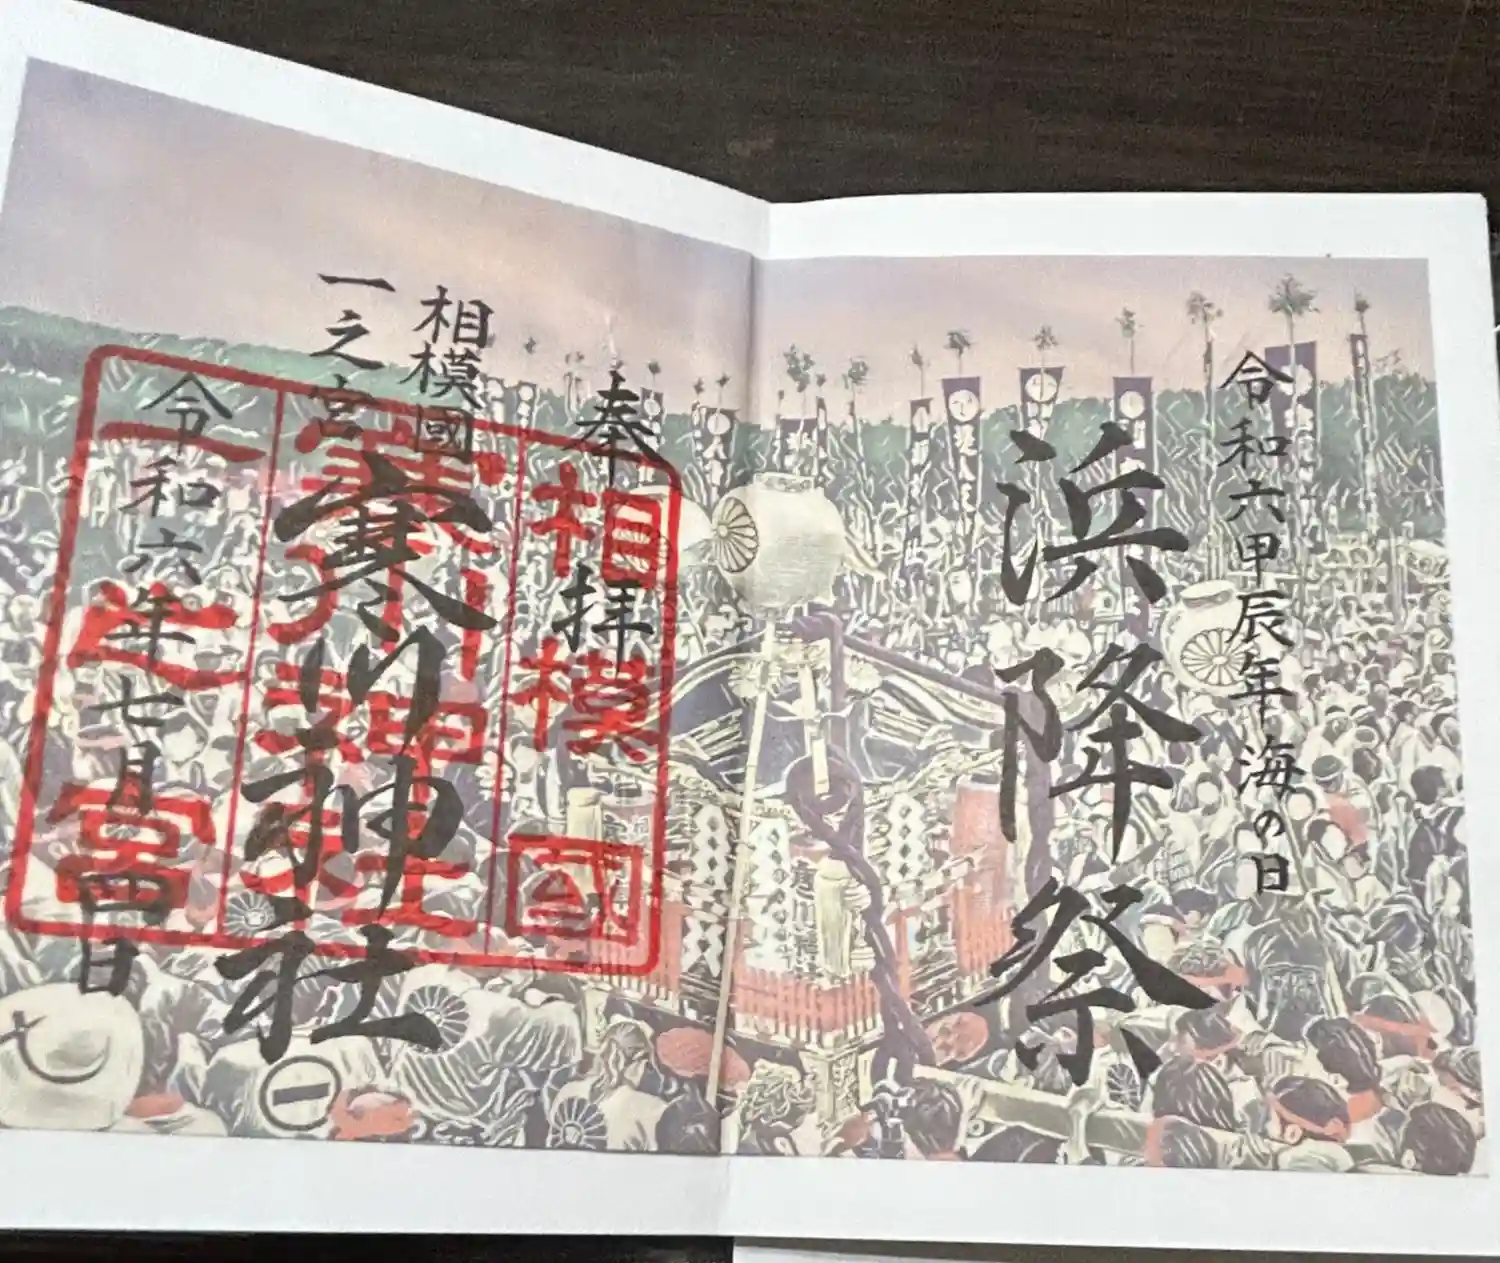 令和六甲辰年海の日
浜降祭
奉拝
相模國
一之宮
寒川神社
令和六年七月四日
相模國
寒川神社
一之宮